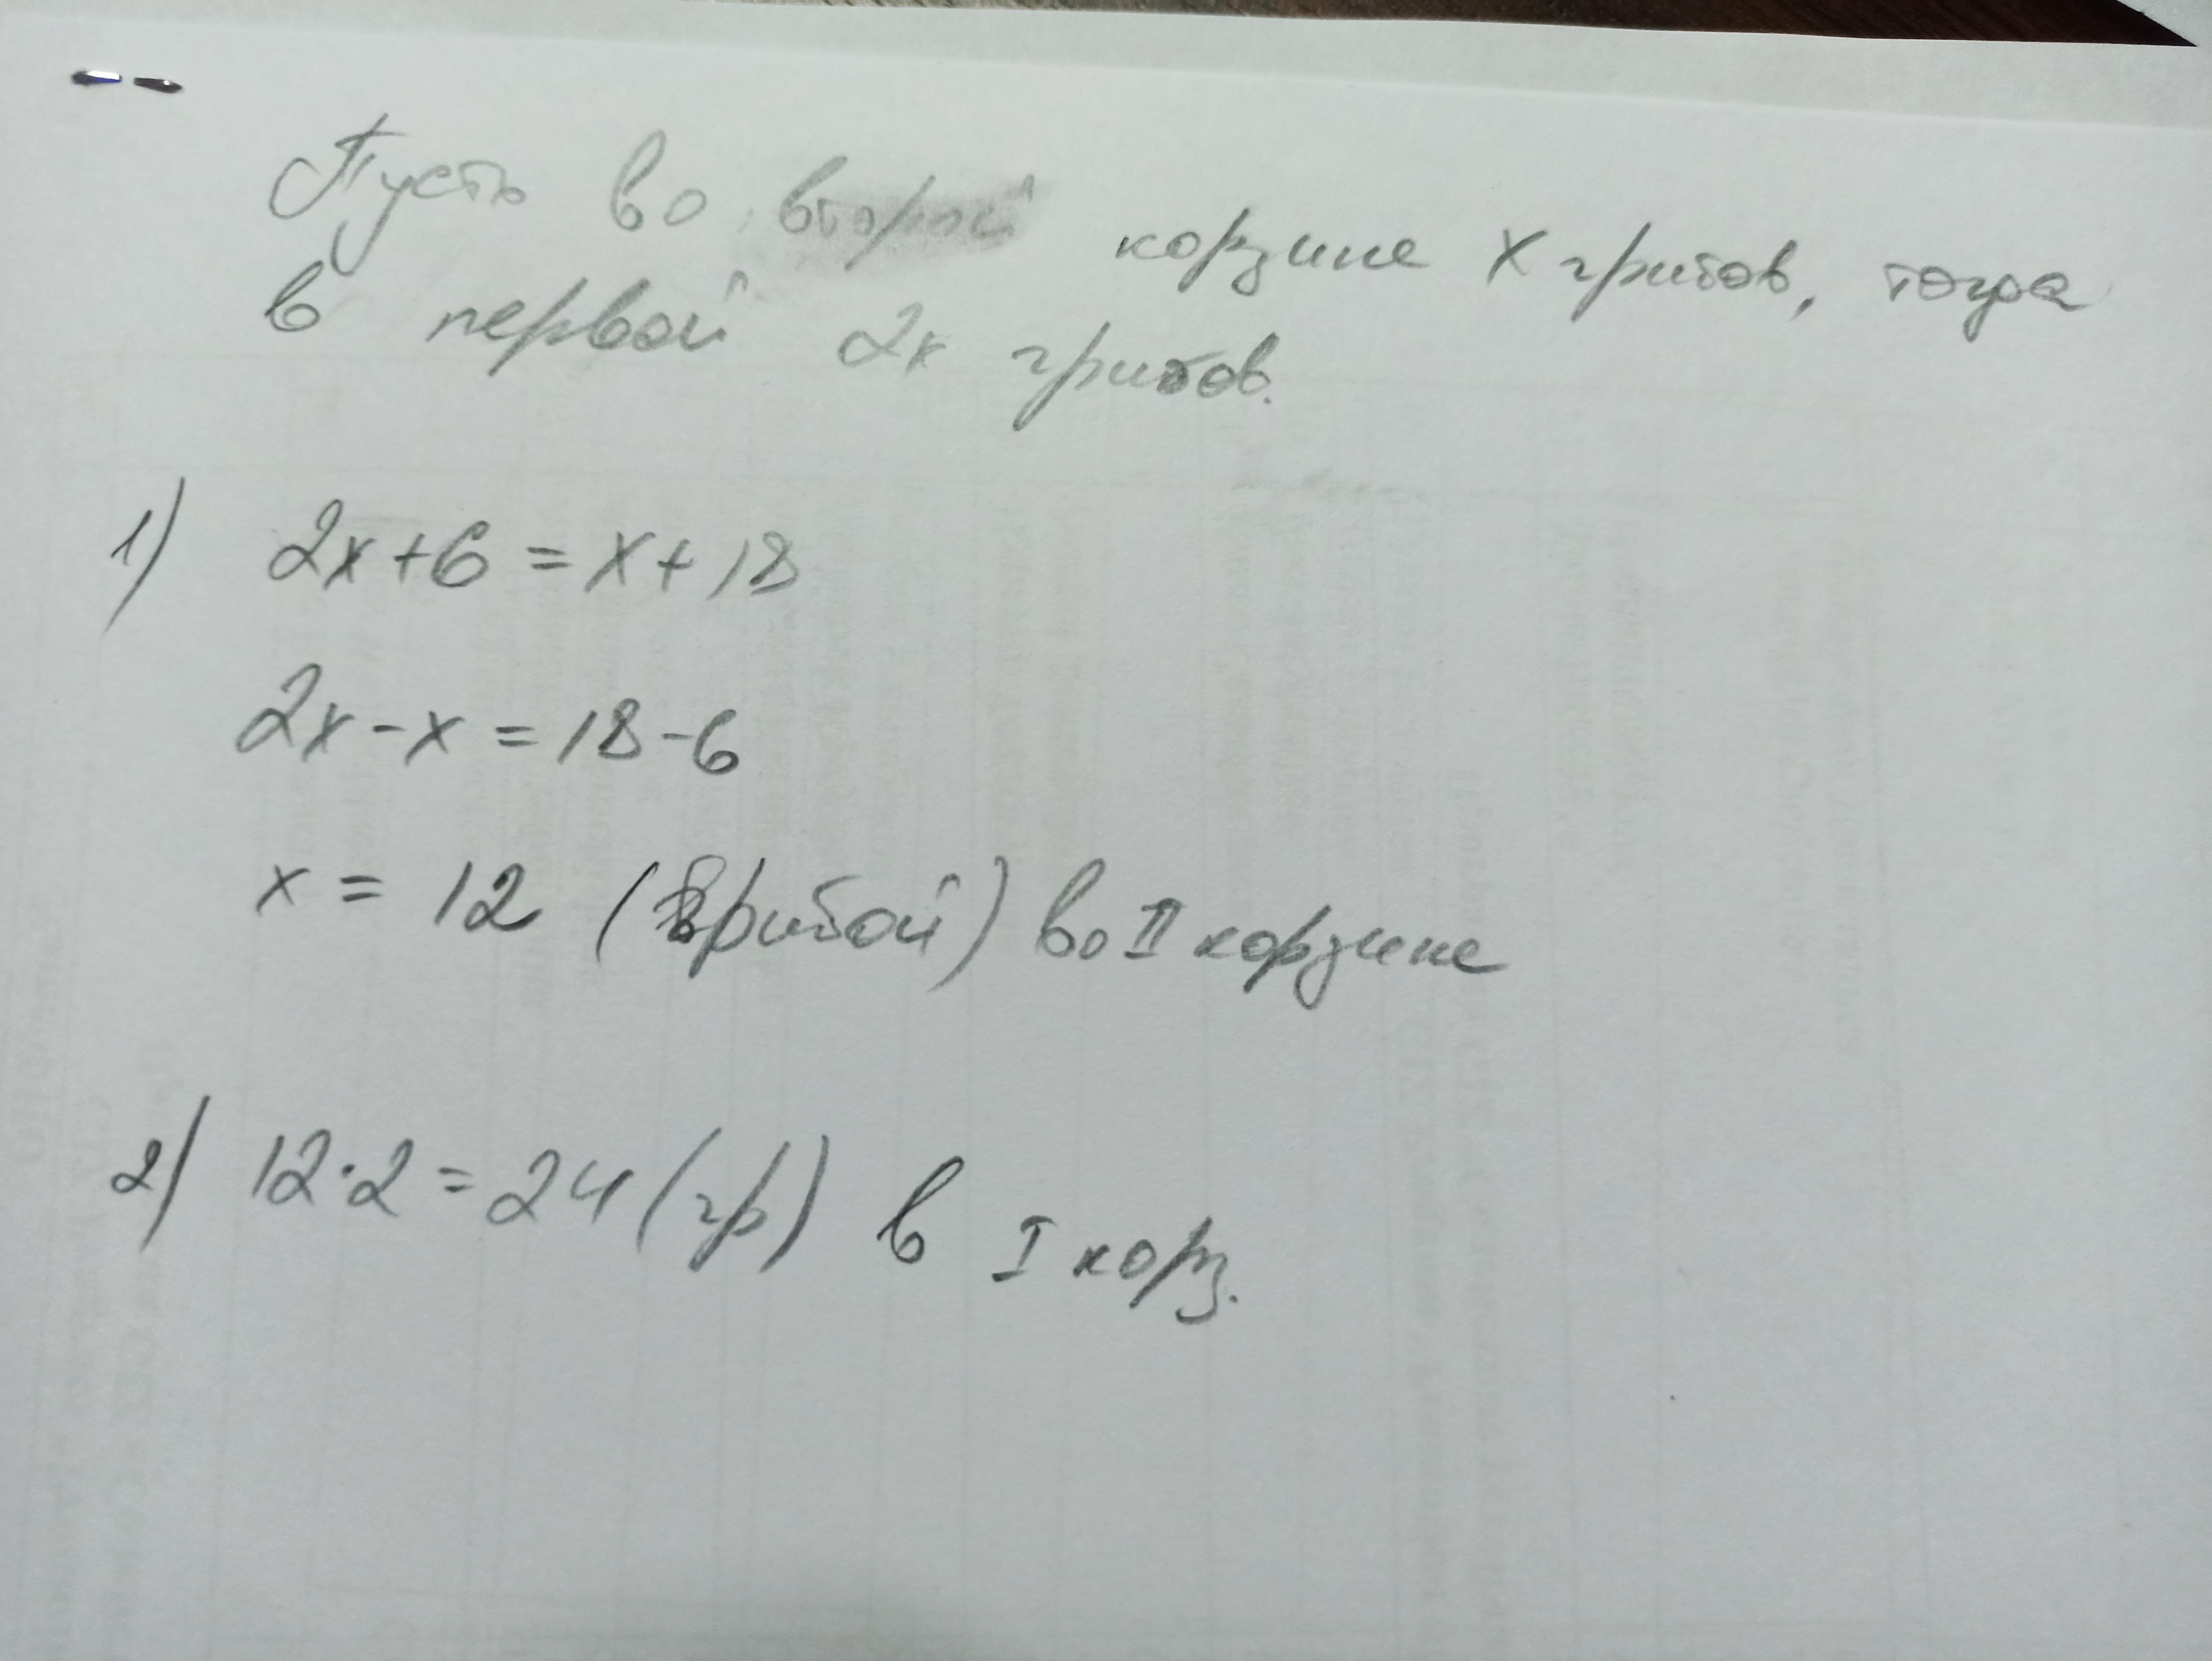 Пусть во второй корзине x грибов, тогда
в первой 2x грибов.
1) 2x+6 = x+18
2x-x = 18-6
x = 12 (грибой) во II корзине
2) 12·2 = 24 (гр) в I корз.